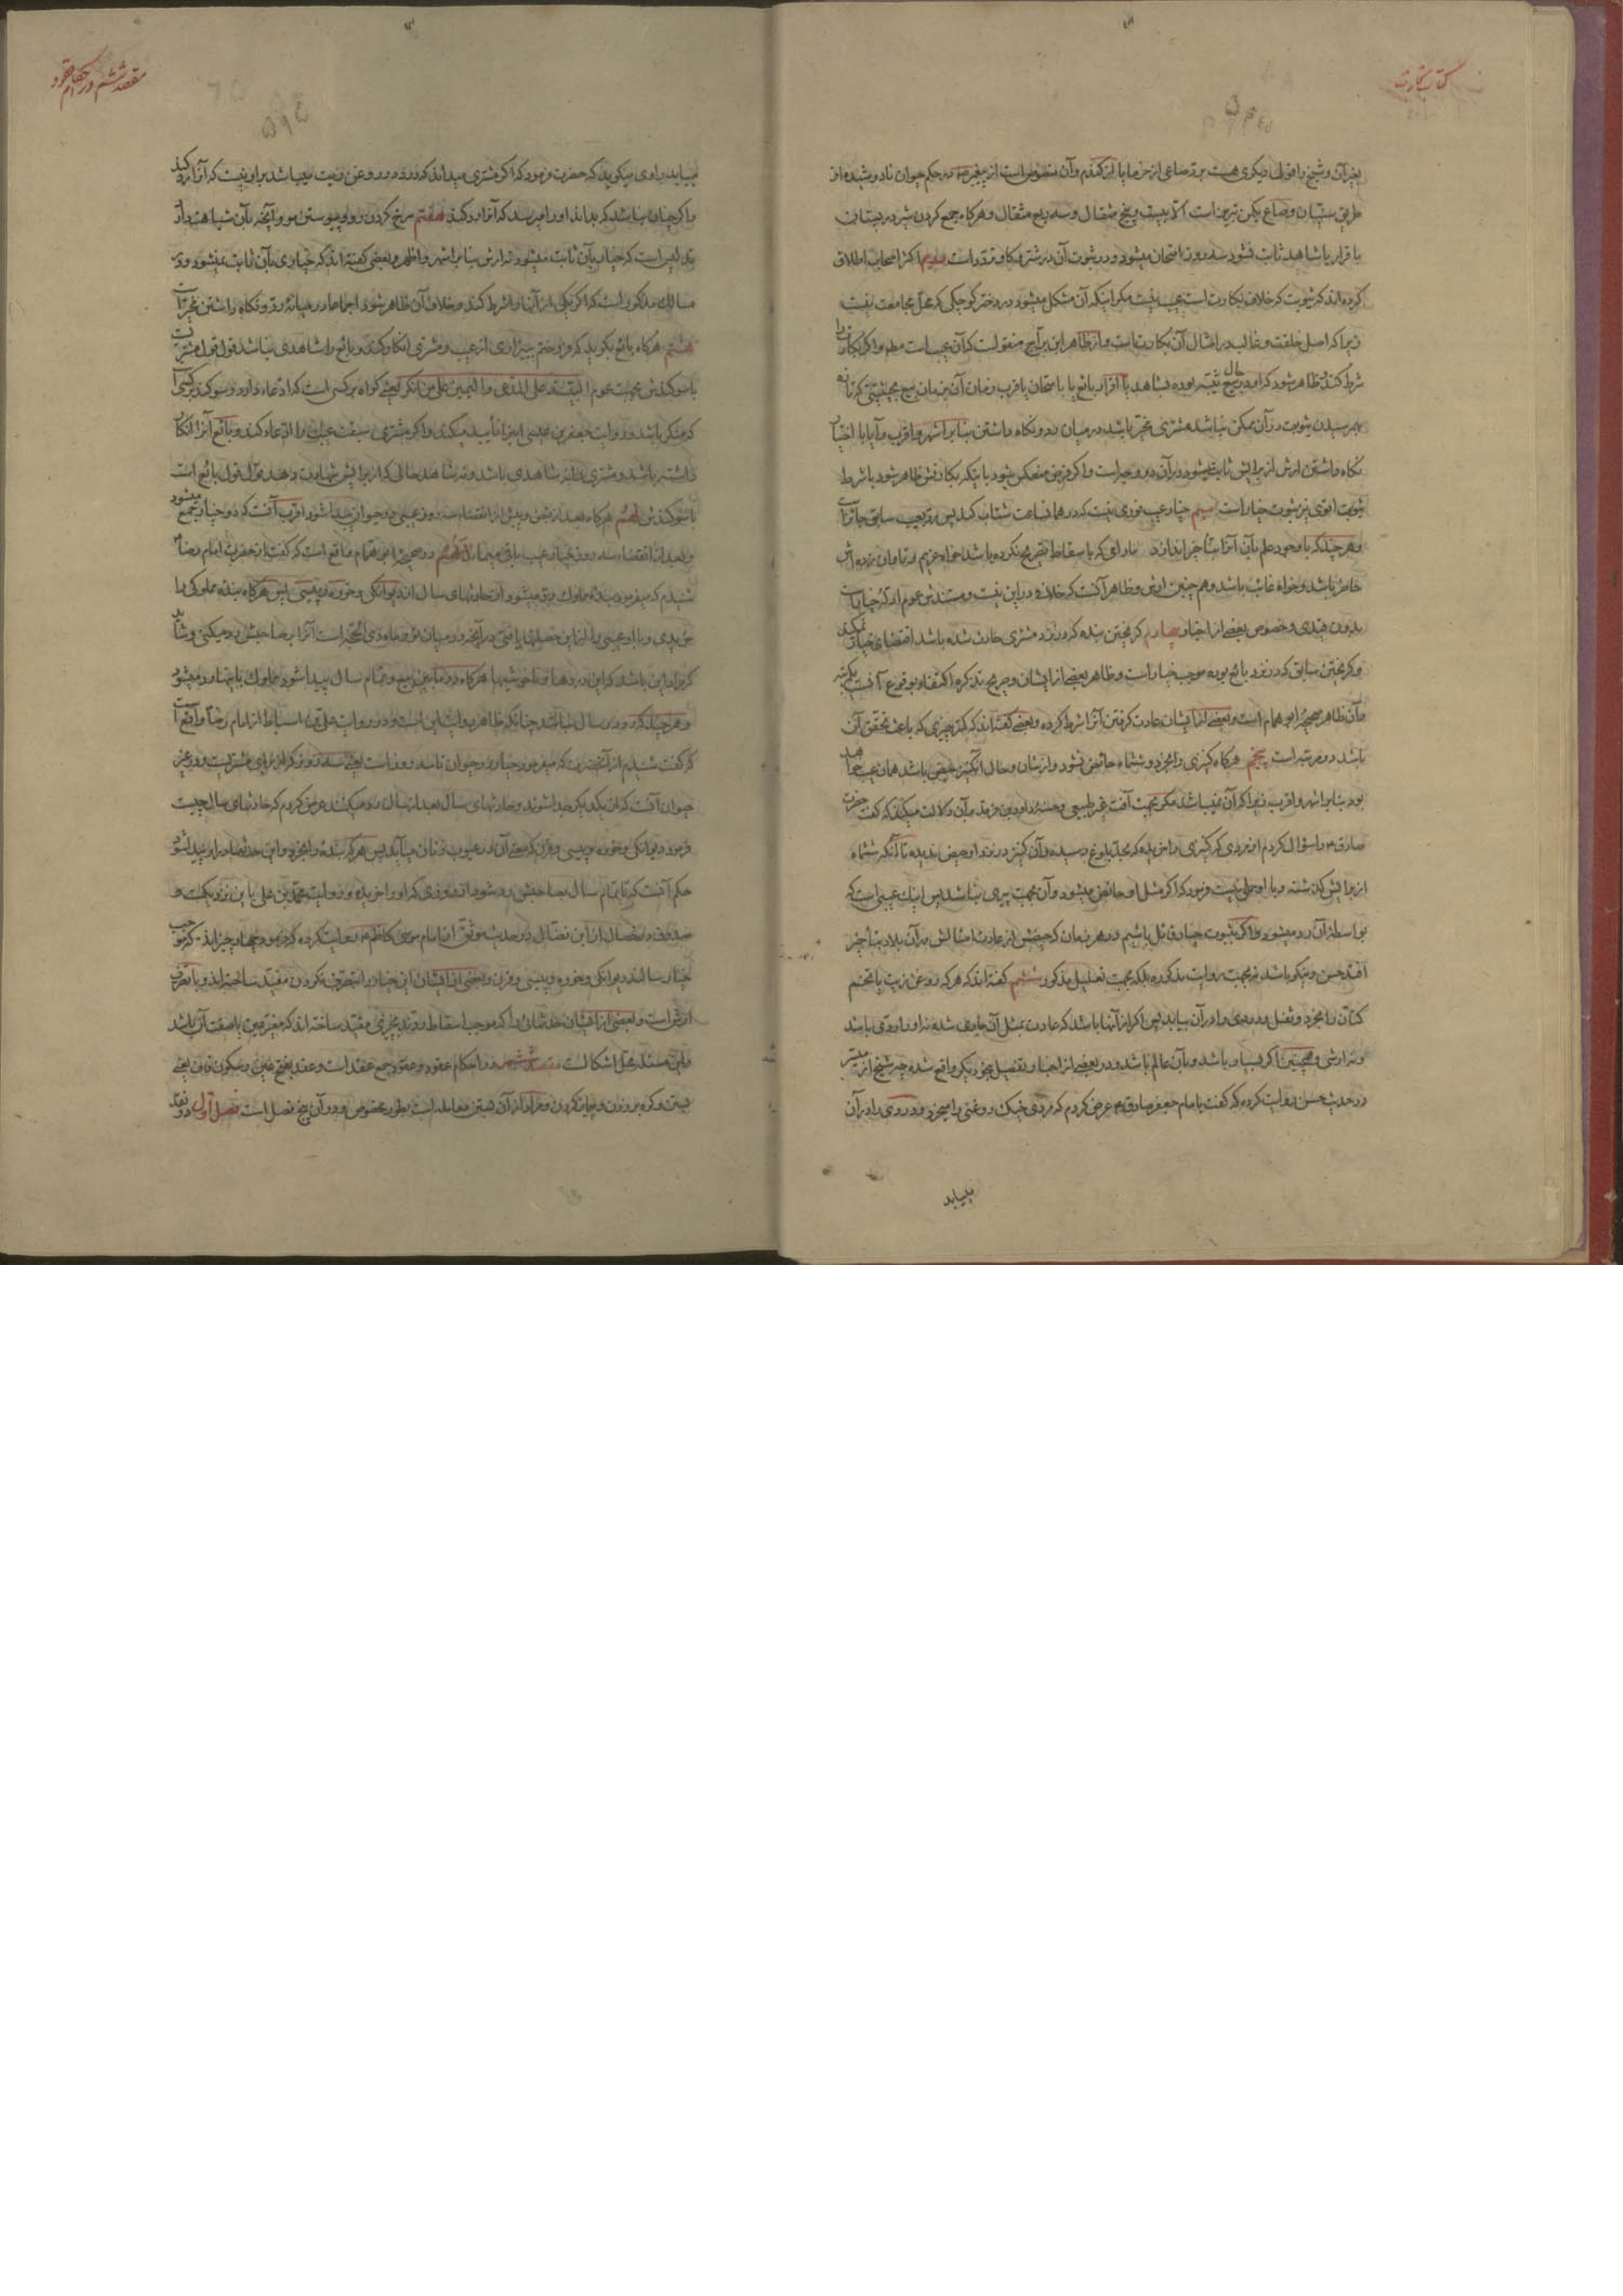 کتاب تجارت
بغیر آن و شیخ را قول دیگری هست برد صاعی از خرما یا از گندم و آن منصوص است از پیغمبر در حکم حیوان نادوشیده از
طریق سنیان وصاع یکمن تبریز است الا بیست و پنج مثقال و سه ربع مثقال و هرگاه جمع کردن شیر در پستان
با قرار یا شاهد ثابت نشود سه روز امتحان میشود و در ثبوت آن در شتر و گاو تردد است دویم اکثر اصحاب اطلاق
کرده اند که ثیوبت که خلاف بکارت است عیب نیست مگر اینکه آن مشکل میشود در دختر کوچکی که محل مجامعت نیست
زیرا که اصل خلقت و غالب در امثال آن بکارت است و از ظاهر ابن براج منقولست که آن عیب است مطلقا و اگر بکارت را
شرط کند و ظاهر شود که او در حال بیع ثیبه بوده بشاهد یا اقرار بائع یا بامتحان با قرب زمان آن بزمان بیع بحیثیتی که تازه
بهم رسیدن ثیوبت در آن ممکن نباشد مشتری مخیر باشد در میان رد و نگاه داشتن بنا بر اشهر و اقرب و آیا با اختیار
نگاه داشتن ارش از برایش ثابت میشود در آن دو وجه است و اگر فرض منعکس شود باینکه بکارتش ظاهر شود با شرط
ثیوبت اقوی نیز ثبوت خیار است سیم خیار عیب فوری نیست که در همان ساعت شتاب کند پس رد بعیب سابق جائز است
و هر چند که با وجود علم بآن آنرا بتأخیر اندازد مادامی که باسقاط تصریح نکرده باشد خواه غریم و تاوان برده اش
حاضر باشد و خواه غائب باشد و هم چنین ارش و ظاهر آنست که خلاف در این نیست و مستندش عموم ادله خیار است
بدون قیدی و خصوص بعضی از اخبار چهارم گریختن بنده که در نزد مشتری حادث شده باشد اقتضای خیار نمیکند
و گریختن سابق که در نزد بائع بوده موجب خیار است و ظاهر بعضی از ایشان و صریح تذکره اکتفا بوقوع آنست یکمرتبه
و آن ظاهر صحیحه ابو همام است و بعضی از ایشان عادت گرفتن آنرا شرط کرده و بعضی گفته اند که کمتر چیزی که باعث تحقق آن
باشد دو مرتبه است پنجم هرگاه کنیزی را بخرد و ششماه حائض نشود و از شان و حال آنکنیز حیض باشد همان عیب خواهد
بود بنا بر اشهر و اقرب زیرا که آن نمیباشد مگر بجهت آفت غیر طبیعی و حسنه داود بن فرقد بر آن دلالت میکند که گفت حضرت
صادق را سؤال کردم از مردی که کنیزی را خریده که بحد بلوغ رسیده و آن کنیز در نزد او حیض ندیده تا آنکه ششماه
از برایش گذشته و با او حملی نیست فرمود که اگر مثل او حائض میشود و آن بجهت پیری نباشد پس اینک عیبی است که
بواسطه آن رد میشود و اگر بثبوت خیار قائل باشیم در هر زمان که حیضش از عادت امثالش در آن بلاد بتأخیر
افتد حسن و نیکو باشد نه بجهت روایت مذکوره بلکه بجهت تعلیل مذکور ششم گفته اند که هر که روغن زیت یا تخم
کتان را بخرد و ثفل و دردی را در آن بیابد پس اگر از آنها باشد که عادت بمثل آن جاری شده نه او را ردی باشد
و نه ارشی و همچنین اگر بسیار باشد و بآن عالم باشد و در بعضی از اخبار تفصیل بنحو دیگر واقع شده چه شیخ از میسر
در حدیث حسن روایت کرده که گفت بامام جعفر صادق عرض کردم که مردی خیک روغنی را میخرد و دردی را در آن
میابد
مقصد ششم در احکام عقود
میابد راوی میگوید که حضرت فرمود که اگر مشتری میداند که دردی در روغن زیت میباشد بر او نیست که آنرا رد کند
و اگر چنان نباشد که بداند او را میرسد که آنرا رد کند هفتم سرخ کردن رو و پیوستن مو و آنچه بآن شباهت دارد
تدلیس است که خیار بآن ثابت میشود نه ارش بنا بر اشهر و اظهر و بعضی گفته اند که خیاری بآن ثابت نمیشود و در
مسالک مذکور است که اگر یکی از آنها را شرط کند و خلاف آن ظاهر شود اجماعا در میانه رد و نگاه داشتن مخیر است
هشتم هرگاه بائع بگوید که فروختم ببیزاری از عیب و مشتری انکار کند و بائع را شاهدی نباشد قول قول مشتریست
با سوگندش بجهت عموم البینة علی المدعی و الیمین علی من انکر یعنی گواه بر کسی است که ادعاء دارد و سوگند بر کسی
که منکر باشد و روایت جعفر بن عیسی اینرا تأیید میکند و اگر مشتری سبقت عیب را ادعاء کند و بائع آنرا انکار
داشته باشد و مشتری را نه شاهدی باشد و نه شاهد حالی که از برایش شهادت دهد قول قول بائع است
با سوگندش نهم هرگاه بعد از قبض و پیش از انقضاء سه روز عیبی در حیوان پیدا شود اقرب آنست که دو خیار جمع میشود
و بعد از انقضاء سه روز خیار عیب باقی میماند دهم در صحیحه ابو همام واقع است که گفت از حضرت امام رضا
شنیدم که میفرمود بنده مملوک رد میشود از حادثهای سال از دیوانگی و خوره و پیسی پس هرگاه بنده مملوکی را
خریدی و با او عیبی را از این خصلتها یافتی در آنچه در میان تو و ماه ذی الحجه است آنرا بصاحبش رد میکنی و شاید
که مراد این باشد که این دردها و ناخوشیها هرگاه در مابین بیع و تمام سال پیدا شود مملوک بآنها رد میشود
و هر چند که رد در سال نباشد چنانکه ظاهر روایت این است و در روایت علی بن اسباط از امام رضا واقع است
که گفت شنیدم از آنحضرت که میفرمود خیار در حیوان تا سه روز است یعنی سه روز که از برای مشتریست و در غیر
حیوان آنست که از یکدیگر جدا شوند و حادثهای سال بعد از سال رد میکنند عرض کردم که حادثهای سال چیست
فرمود دیوانگی و خوره و پیسی و قرن که معنی آن در عیوب زنان میآید پس هر که بنده را بخرد و این حدثها در او پیدا شود
حکم آنست که تا تمام سال بصاحبش رد شود از روزی که او را خریده و روایت محمد بن علی باین نزدیکست و
صدوق در خصال از ابن فضال در حدیث موثق از امام موسی کاظم روایت کرده که فرمود چهار چیزاند که موجب
خیار سالند دیوانگی و خوره و پیسی و قرن و بعضی از ایشان این خیار را بتصرف نکردن مقید ساخته اند و با تصرف
ارش است و بعضی از ایشان حدثهائی را که موجب اسقاط ردند بچیزی مقید ساخته اند که مغیر عین یا صفت آن باشد
و این مسئله محل اشکالست مقصد ششم در احکام عقود و عقود جمع عقد است و عقد بفتح عین و سکون قاف یعنی
بستن و گره بر زدن و پیمان کردن و مراد از آن همین معامله است بطور مخصوص و در آن پنج فصل است فصل اول در نقد